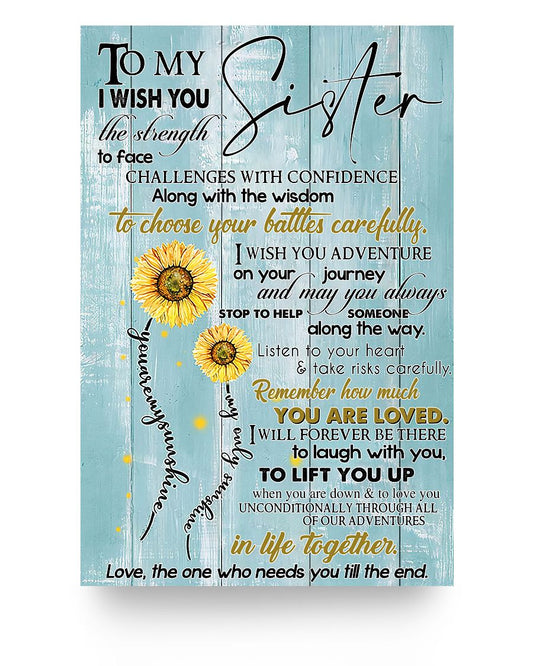 TO MY Sister
I WISH YOU
the strength
to face
CHALLENGES WITH CONFIDENCE
Along with the wisdom
to choose your battles carefully.
I WISH YOU ADVENTURE
on your journey
and may you always
STOP TO HELP SOMEONE
along the way.
Listen to your heart
& take risks carefully.
Remember how much
YOU ARE LOVED.
I WILL FOREVER BE THERE
to laugh with you,
TO LIFT YOU UP
when you are down & to love you
UNCONDITIONALLY THROUGH ALL
OF OUR ADVENTURES
in life together.
Love, the one who needs you till the end.
you are my sunshine
my only sunshine